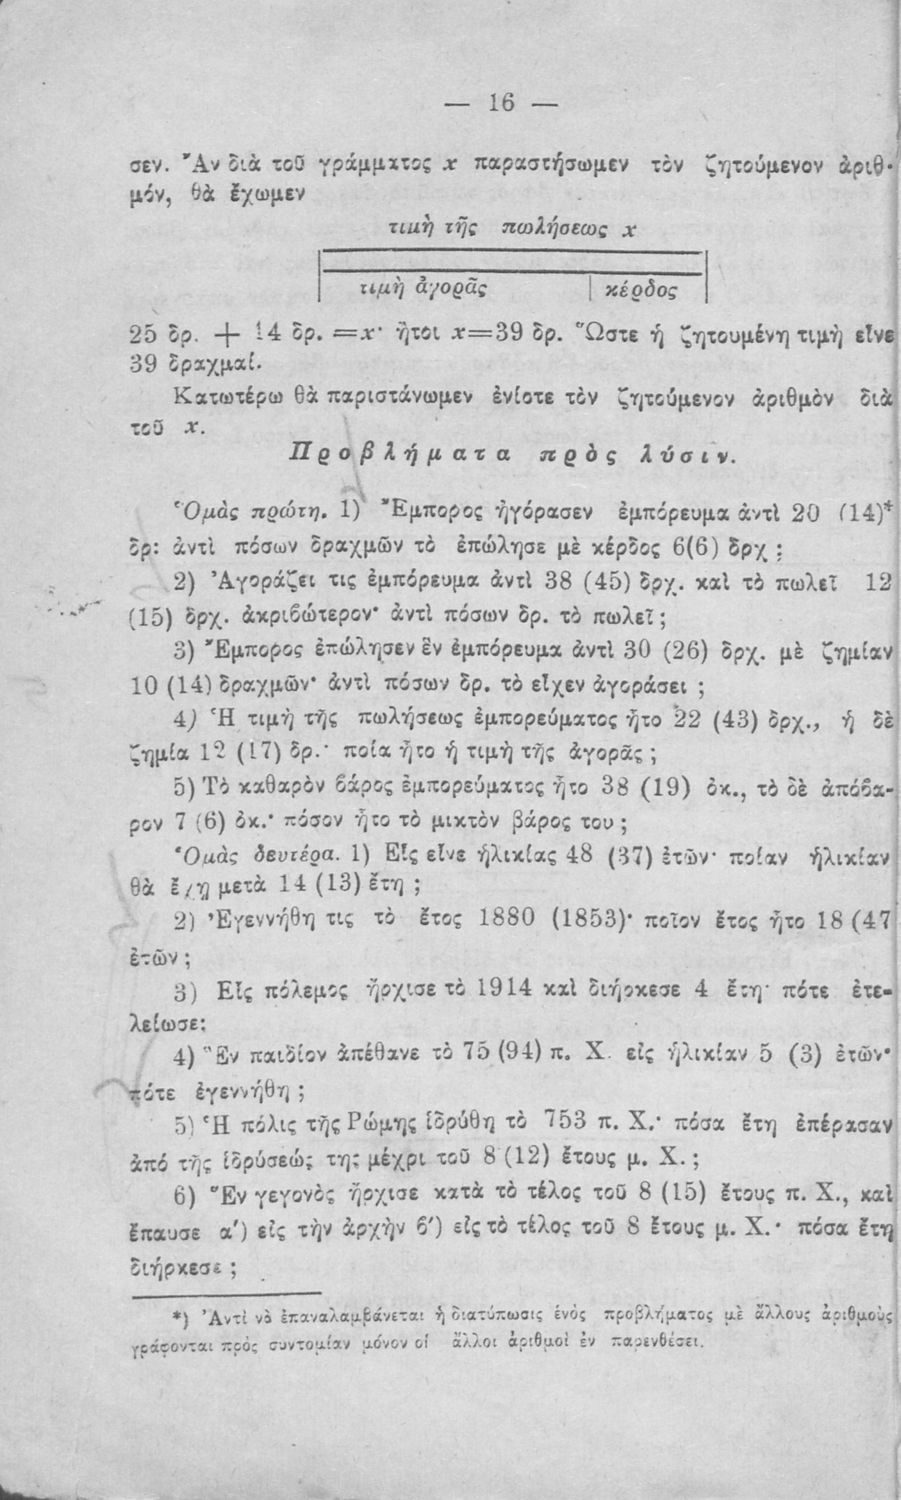 — 16 —
σεν. Ἂν διὰ τοῦ γράμματος x παραστήσωμεν τὸν ζητούμενον ἀριθ-
μόν, θὰ ἔχωμεν
τιμὴ τῆς πωλήσεως x
τιμὴ ἀγορᾶς | κέρδος
25 δρ. + 14 δρ. = x· ἤτοι x=39 δρ. Ὥστε ἡ ζητουμένη τιμὴ εἶνε
39 δραχμαί.
Κατωτέρω θὰ παριστάνωμεν ἐνίοτε τὸν ζητούμενον ἀριθμὸν διὰ
τοῦ x.
Προβλήματα πρὸς λύσιν.
Ὁμὰς πρώτη. 1) Ἔμπορος ἠγόρασεν ἐμπόρευμα ἀντὶ 20 (14)*
δρ: ἀντὶ πόσων δραχμῶν τὸ ἐπώλησε μὲ κέρδος 6(6) δρχ ;
2) Ἀγοράζει τις ἐμπόρευμα ἀντὶ 38 (45) δρχ. καὶ τὸ πωλεῖ 12
(15) δρχ. ἀκριβώτερον· ἀντὶ πόσων δρ. τὸ πωλεῖ ;
3) Ἔμπορος ἐπώλησεν ἓν ἐμπόρευμα ἀντὶ 30 (26) δρχ. μὲ ζημίαν
10 (14) δραχμῶν· ἀντὶ πόσων δρ. τὸ εἶχεν ἀγοράσει ;
4) Ἡ τιμὴ τῆς πωλήσεως ἐμπορεύματος ἦτο 22 (43) δρχ., ἡ δὲ
ζημία 12 (17) δρ.· ποία ἦτο ἡ τιμὴ τῆς ἀγορᾶς ;
5) Τὸ καθαρὸν βάρος ἐμπορεύματος ἦτο 38 (19) ὀκ., τὸ δὲ ἀπόβα-
ρον 7 (6) ὀκ.· πόσον ἦτο τὸ μικτὸν βάρος του ;
Ὁμὰς δευτέρα. 1) Εἷς εἶνε ἡλικίας 48 (37) ἐτῶν· ποίαν ἡλικίαν
θὰ ἔχῃ μετὰ 14 (13) ἔτη ;
2) Ἐγεννήθη τις τὸ ἔτος 1880 (1853)· ποῖον ἔτος ἦτο 18 (47
ἐτῶν ;
3) Εἷς πόλεμος ἤρχισε τὸ 1914 καὶ διήρκεσε 4 ἔτη· πότε ἐτε-
λείωσε;
4) Ἓν παιδίον ἀπέθανε τὸ 75 (94) π. Χ. εἰς ἡλικίαν 5 (3) ἐτῶν·
πότε ἐγεννήθη ;
5) Ἡ πόλις τῆς Ρώμης ἱδρύθη τὸ 753 π. Χ.· πόσα ἔτη ἐπέρασαν
ἀπὸ τῆς ἱδρύσεώς της μέχρι τοῦ 8 (12) ἔτους μ. Χ. ;
6) Ἓν γεγονὸς ἤρχισε κατὰ τὸ τέλος τοῦ 8 (15) ἔτους π. Χ., καὶ
ἔπαυσε α′) εἰς τὴν ἀρχὴν β′) εἰς τὸ τέλος τοῦ 8 ἔτους μ. Χ.· πόσα ἔτη
διήρκεσε ;
*) Ἀντὶ νὰ ἐπαναλαμβάνεται ἡ διατύπωσις ἑνὸς προβλήματος μὲ ἄλλους ἀριθμοὺς
γράφονται πρὸς συντομίαν μόνον οἱ ἄλλοι ἀριθμοὶ ἐν παρενθέσει.